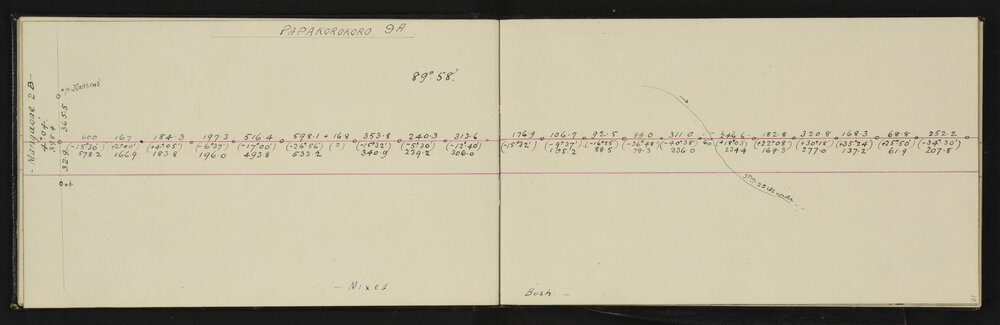 PAPAKOROKORO 9A
89° 58'
- Mangaoue 2B -
4° 04'
398.4
32.9 365.5
600 167 184.3 197.3 516.4 598.1 + 168 353.8 240.3 313.6
(-15°36') (2°00') (4°05') (-6°37') (-17°00') (-26°56') (2) (-15°32') (-5°30') (-12°40')
578.2 166.9 183.8 196.0 493.8 533.2 340.9 239.2 306.0
- Mixed
176.9 106.7 92.5 99.0 311.0 246.6 182.8 320.8 168.3 68.8 252.2
(-15°32') (-9°37') (-16°55') (-36°48') (-40°38') 40 (+18°03') (+22°08') (+30°18') (+35°24') (+25°50') (-34°30')
105.2 88.5 79.3 236.0 234.4 169.3 277.0 137.2 61.9 207.8
Stm. 25 lks wide
Bush. -